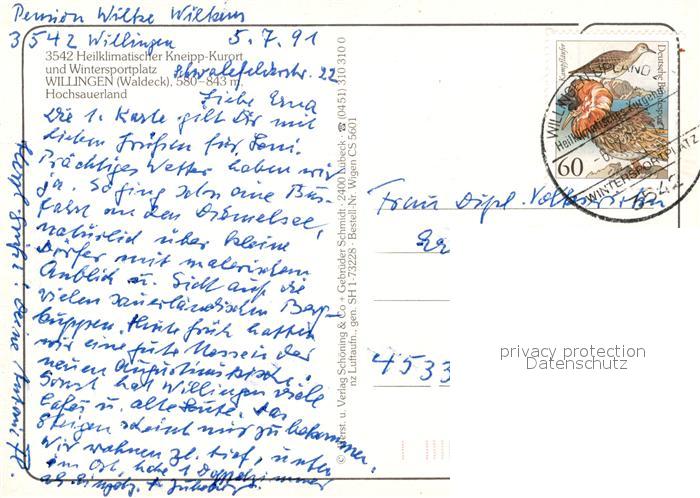 Pension Wilke Wilkens
3542 Willingen 5.7.91
3542 Heilklimatischer Kneipp-Kurort
und Wintersportplatz
WILLINGEN (Waldeck), 580–843 m,
Hochsauerland
Schwalefelderstr. 22
Liebe Erna
Die 1. Karte gilt Dir mit
lieben Grüßen für Toni.
Prächtiges Wetter haben wir
ja. So ging schon eine Bus-
fahrt an den Diemelsee,
natürlich über kleine
Dörfer mit malerischem
Anblick u. Sicht auf die
vielen sauerländischen Berg-
kuppen. Heute früh hatten
wir eine gute Messe in der
neuen Augustinuskirche.
Sonst hat Willingen viele
Cafés u. alte Leute. Das
Steigen scheint mir zu bekommen.
Wir wohnen zl. tief, unten
im Ort, habe 1 Doppelzimmer
als
Herzl. Grüße! Deine
© Herst. u. Verlag Schöning & Co + Gebrüder Schmidt · 2400 Lübeck · ☎ (0451) 310 310 0
nz Luftaufn., gen. SH 1-73228 · Bestell-Nr. Wigen CS 5601
Kampfläufer
Deutsche Bundespost
60
WILLINGEN, UPLAND
Heilklimatischer Kneippkurort
WINTERSPORTPLATZ
3542
Frau Dipl. Volkswirtin
4533
privacy protection
Datenschutz